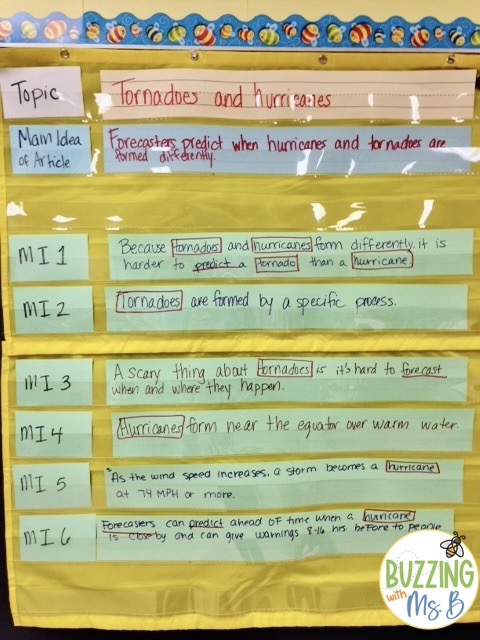 Topic
Tornadoes and hurricanes
Main Idea
of Article
Forecasters predict when hurricanes and tornadoes are
formed differently.
MI 1
Because tornadoes and hurricanes form differently, it is
harder to predict a tornado than a hurricane
MI 2
Tornadoes are formed by a specific process.
MI 3
A scary thing about tornadoes is it's hard to forecast
when and where they happen.
MI 4
Hurricanes form near the equator over warm water.
MI 5
As the wind speed increases, a storm becomes a hurricane
at 74 MPH or more.
MI 6
Forecasers can predict ahead of time when a hurricane
is close by and can give warnings 8-16 hrs before to people
BUZZING
with
Ms. B